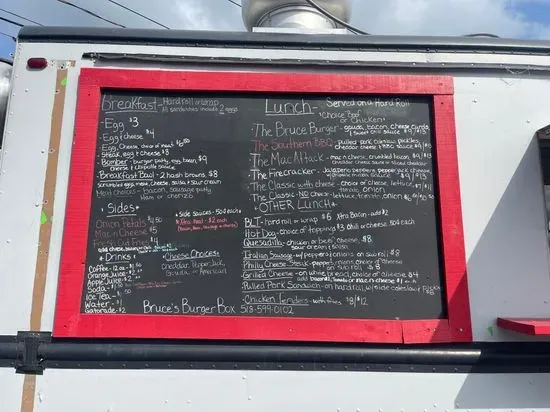 Breakfast - Hard roll or wrap
All sandwiches include 2 eggs
- Egg $3
- Egg & cheese $4
- Egg, Cheese, choice of meat
- Steak, egg & cheese $8
- Bomber - burger patty, egg, bacon, $9
cheese & chipotle sauce
- Breakfast Bowl - 2 hash browns, $8
scrambled eggs, meat, cheese, salsa & sour cream
Meat choices - Bacon, sausage patty
Ham or chorizo
• Sides •
Onion Petals
Mac n Cheese
Fresh Cut Fries
• Side Sauces - 50¢ each
• Drinks •
Coffee - 12 oz
Orange Juice
Apple Juice
Soda
Iced Tea
Water - $1
Gatorade - $2
• Cheese Choices •
cheddar, Pepper Jack,
Gouda, or American
Bruce's Burger Box 518-599-0102
Lunch - Served on a Hard Roll
*Choice Beef
or Chicken*
- The Bruce Burger - gouda, bacon, cheese curds
& sweet chili sauce
- The Southern BBQ - pulled pork, coleslaw, pickles,
cheddar cheese & BBQ sauce
- The Mac Attack - mac n cheese, crumbled bacon,
cheddar cheese sauce or sliced cheddar
- The Firecracker - Jalapeño, banana pepper, pepper jack cheese
- The Classic with cheese - choice of cheese, lettuce,
tomato, onion
- The Classic - NO cheese - lettuce, tomato, onion
* OTHER LUNCH *
BLT - hard roll or wrap $6 Xtra Bacon - add $2
Hot Dog - choice of topping $3 chili or cheese 50¢ each
Quesadilla - chicken or beef, cheese, $8
sour cream & salsa
Italian Sausage - w/ peppers & onions on sub roll $8
Philly Cheese Steak - peppers, onions, choice of cheese
on sub roll $8
Grilled Cheese - on white bread, choice of cheese $4
Pulled Pork Sandwich - on hard roll, w/ side coleslaw
Chicken Tenders - with fries $8/$12